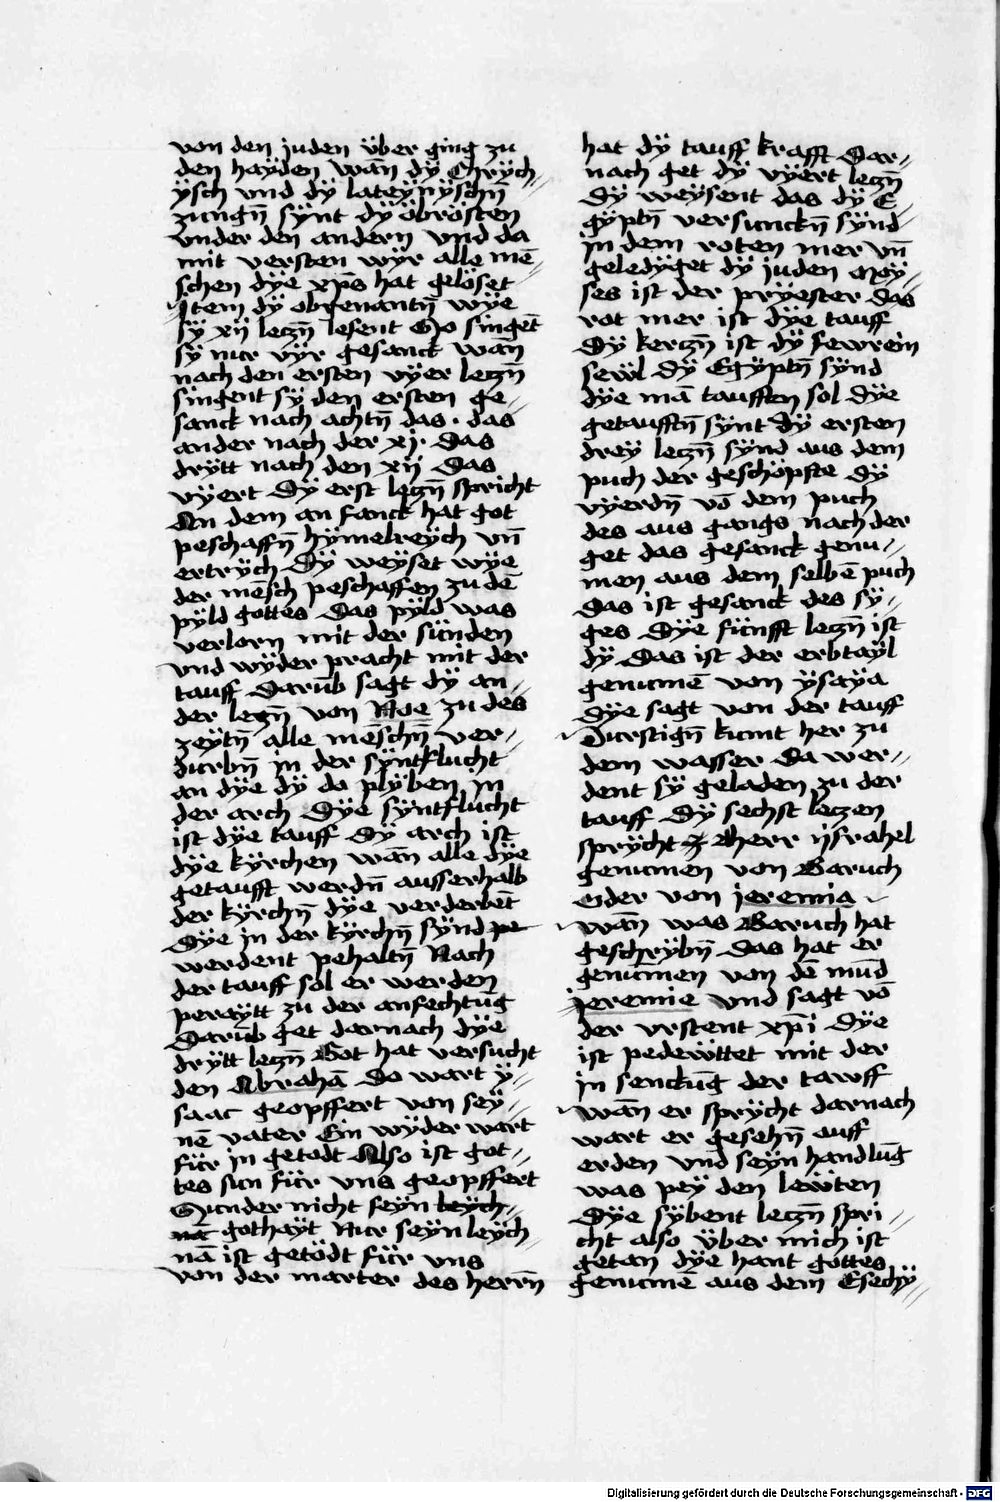 von den juden über ging zu
den haÿden wān dÿ Chrÿch//
ÿsch vnd dÿ lateÿnÿschn̄
zungn̄ sÿnt dÿ öbrösten
vnder den andern vnd da
mit versten wÿr alle mē//
schen dÿe xp̄s hat gelöset
Item dÿ obgenantn̄ wÿe
sÿ xij leczn̄ lesent So singēt
sÿ nur vÿr gesanck wān
nach den ersten vÿer leczn̄
singent sÿ den ersten ge//
sanck nach achtn̄ das · das
ander nach der xj · das
drÿtt nach den xij das
vÿert Dÿ erst leczn̄ spricht
An dem an fanck hat got
peschaffn̄ hÿmelreÿch vn̄
ertrÿch Dÿ weÿset wÿe
der mēsch peschaffen zu dē
pÿld gottes Das pÿld was
verlorn mit der sünden
vnd wÿder pracht mit der
tauff Darūb sagt dÿ an//
der leczn̄ von Noe zu des
zeÿtn̄ alle mēschn̄ ver//
durbn̄ in der sÿntflucht
an dÿe dÿ do plÿben in
der arch Dÿe sÿntflucht
ist dÿe tauff Dÿ arch ist
dÿe kÿrchen wān alle dÿe
getaufft werdn̄ ausserhalb
der kÿrchn̄ dÿe verderbēt
Dÿe in der kÿrchn̄ sÿnd pe
werdent pehaltn̄ Nach
der tauff sol er werden
peraÿtt zu der anfechtūg
Darūb get darnach dÿe
drÿtt leczn̄ Got hat versucht
den Abrahā Do wart ÿ//
saac geopffert von seÿ//
nē vater Ein wÿder wart
für in getödt Also ist got//
tes sun für vns geopffert
Sunder nicht seÿn leÿch//
nā gothaÿt Nur seÿn leÿch//
nā ist getödt für vns
von der marter des herrn̄
hat dÿ tauff krafft Dar//
nach get dÿ vÿert leczn̄
Dÿ weÿsent das dÿ E//
gÿptn̄ versunckn̄ sÿnd
in dem roten mer vn̄
geledÿget dÿ juden Moÿ//
ses ist der prÿester Das
rot mer ist dÿe tauff
Dÿ kerczn̄ ist dÿ fewrein
sewl Dÿ Egÿptn̄ sÿnd
dÿe mā taufften sol Dÿe
getaufftn̄ sÿnt Dÿ ersten
drey leczn̄ sÿnd aus dem
puch der geschöpfte dÿ
vÿerdn̄ vō dem puch
des aus gangs nach der
get das gesanck genu//
men aus dem selbē puch
Das ist gesanck des sÿ//
ges Dÿe fünfft leczn̄ ist
dÿ Das ist der erbtaÿl
genumē von ÿsaÿa
Dÿe sagt von der tauff
Durstign̄ kumt her zu
dem wasser Da wer//
dent sÿ geladen zu der
tauff Dÿ sechst leczen
sprÿcht herr ijsrahel
genumen von Baruch
oder von jeremia
wān was Baruch hat
geschrÿbn̄ Das hat er
genumen von dē mūd
jeremie vnd sagt vō
der vrstent xp̄i Dÿe
ist pedewttet mit der
in senckūg der tawff
wān er sprÿcht darnach
wart er gesehn̄ auff
erden vnd seÿn handlūg
was peÿ den lewten
Dÿe sÿbent leczn̄ spri//
cht also über mich ist
getan dÿe hant gottes
genumē aus dem Esechÿ//
Digitalisierung gefördert durch die Deutsche Forschungsgemeinschaft - DFG